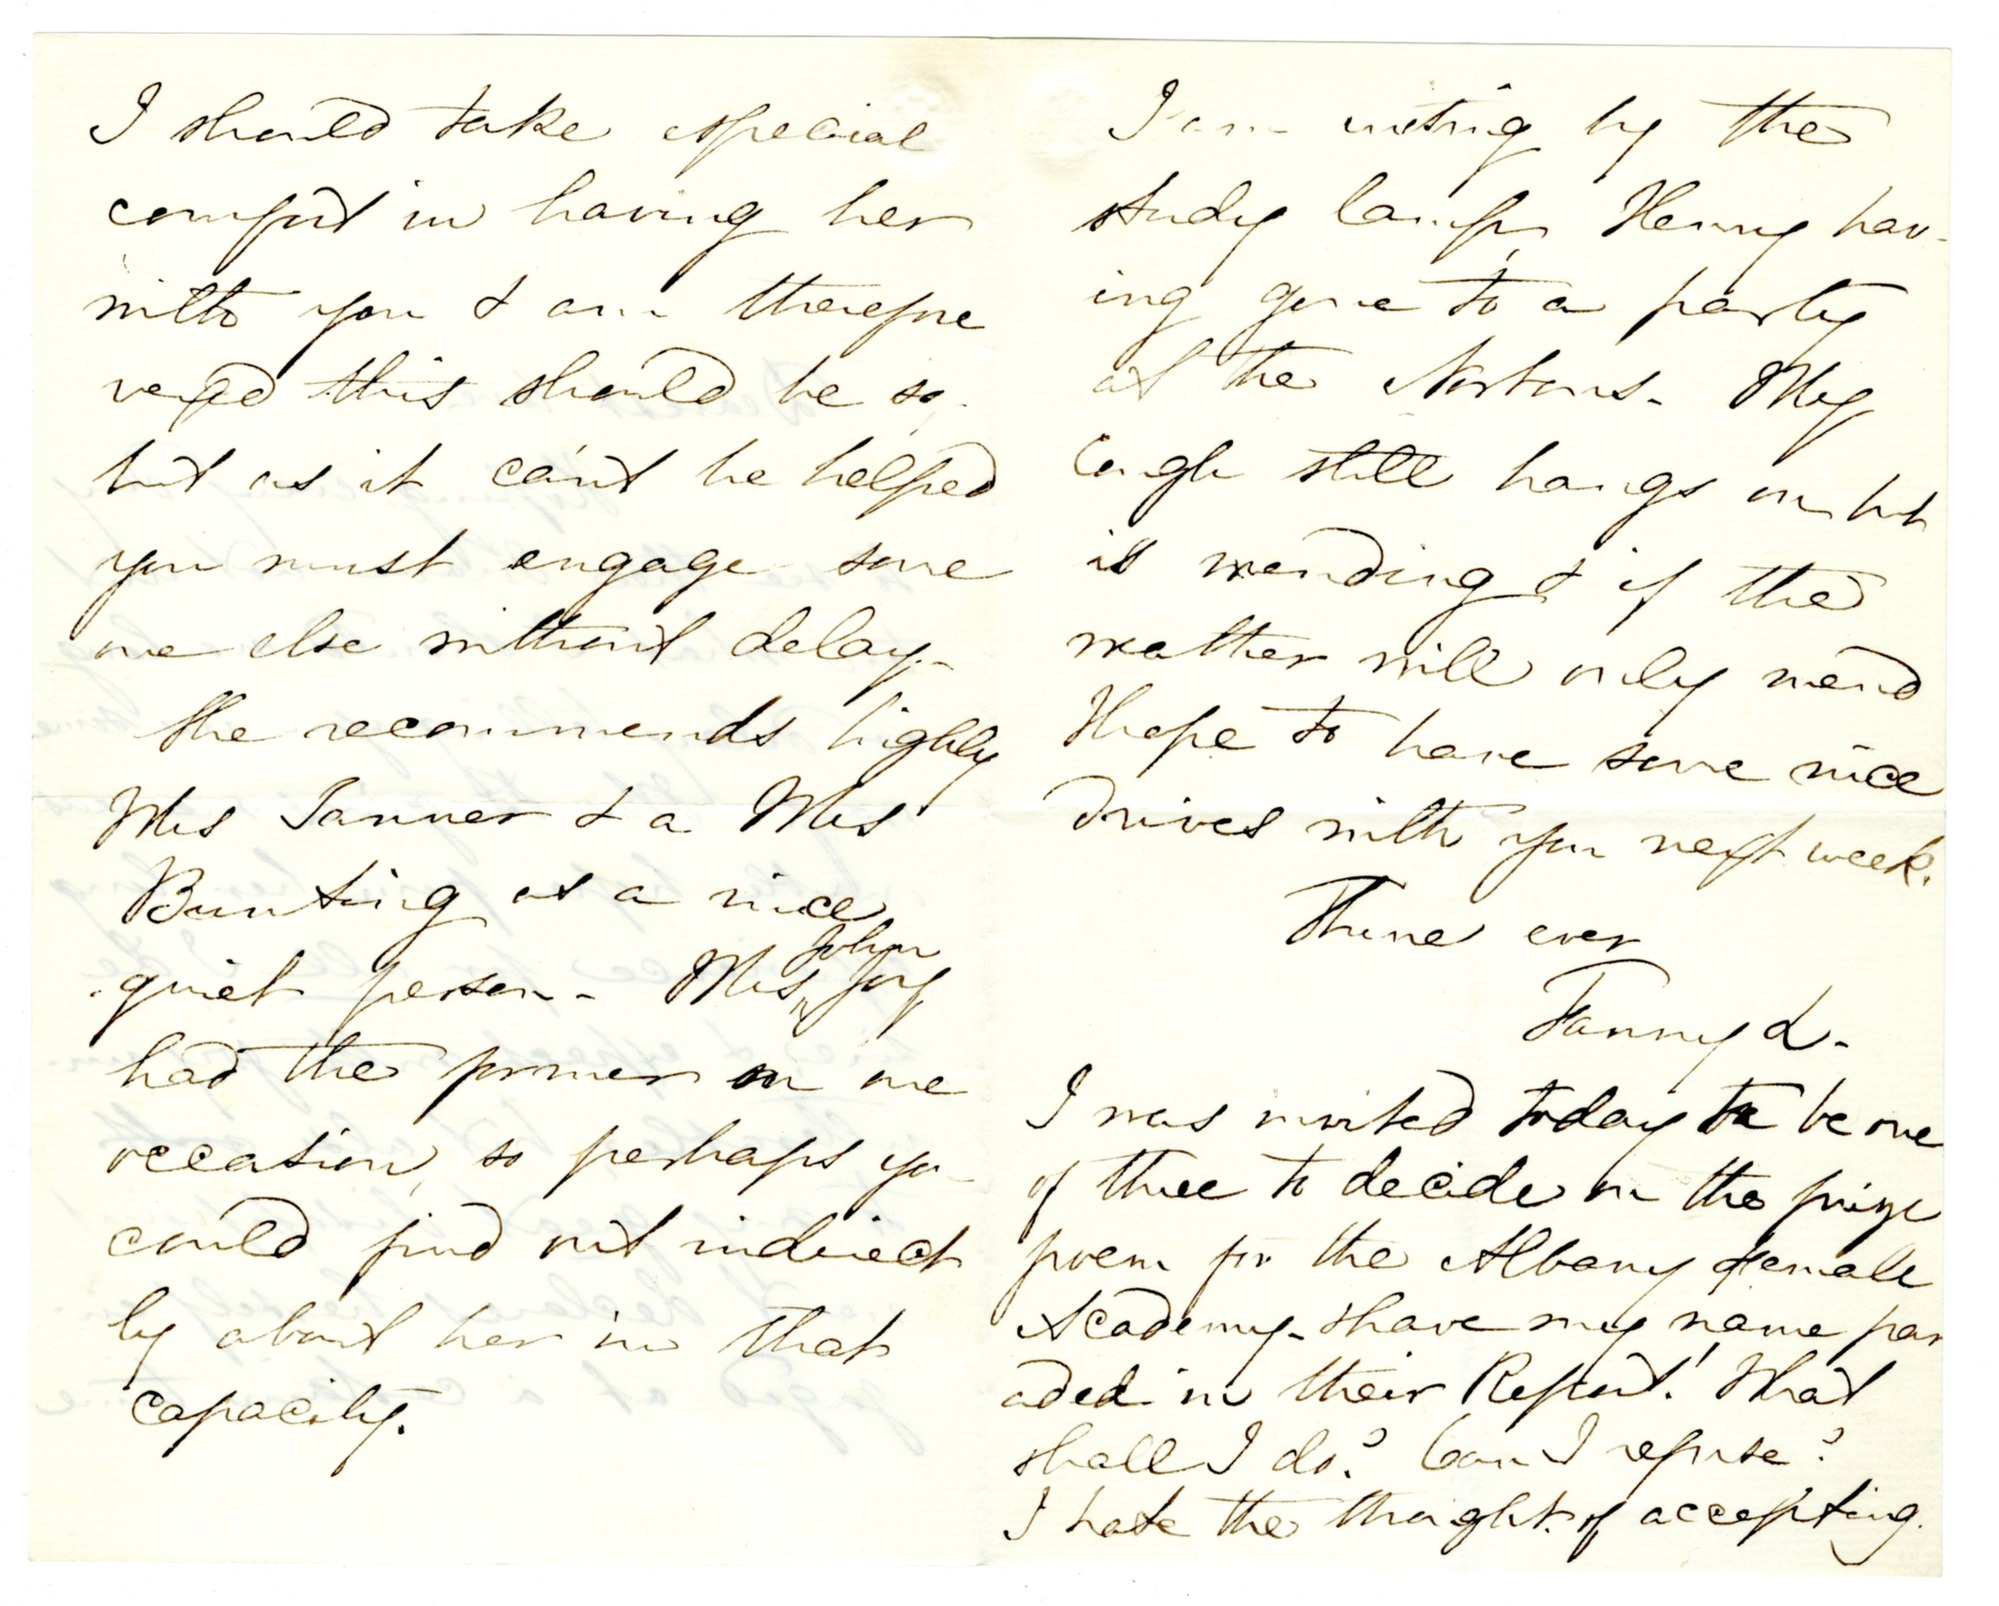 I should take especial
comfort in having her
with you & am therefore
vexed this should be so,
but as it can't be helped
you must engage some
one else without delay.
She recommends highly
Mrs Tanner & a Mrs
Bunting as a nice
quiet person - Mrs John Joy
had the former on one
occasion, so perhaps you
could find out indirect
ly about her in that
capacity.
I am writing by the
study lamp, Henry hav-
ing gone to a party
at the Nortons - My
cough still hangs on but
is mending & if the
weather will only mend
I hope to have some nice
drives with you next week.
Thine ever
Fanny L.
I was invited today to be one
of three to decide on the prize
poem for the Albany female
Academy - & have my name par
aded in their Report! What
shall I do? Can I refuse?
I hate the thought of accepting.